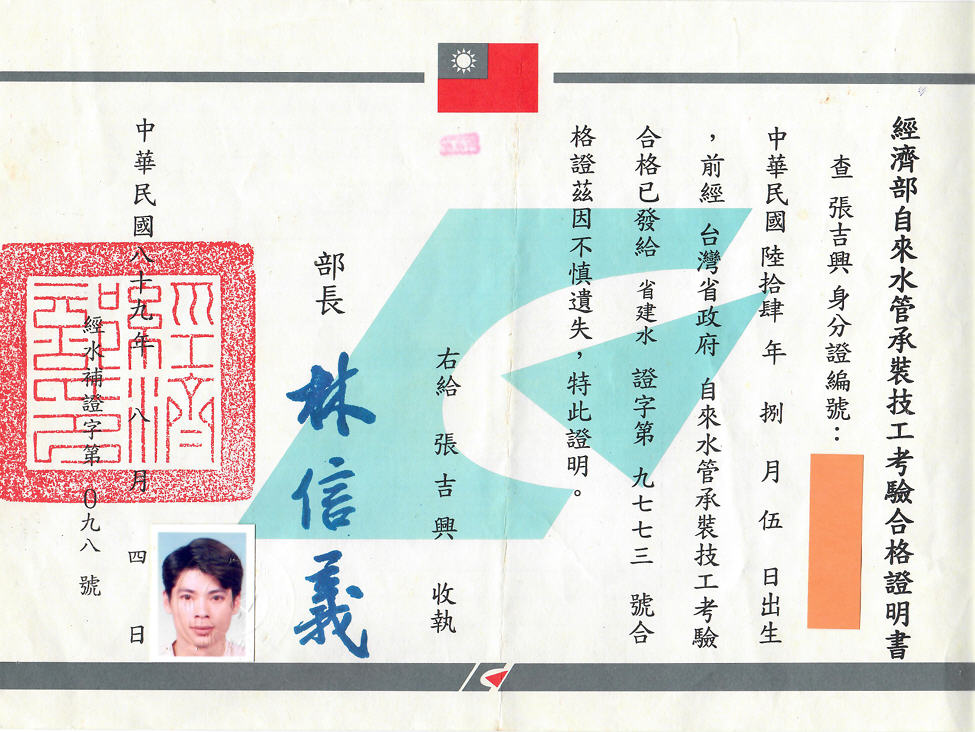 經濟部自來水管承裝技工考驗合格證明書
查 張吉興 身分證編號：
中華民國 陸拾肆 年 捌 月 伍 日出生
，前經 台灣省政府 自來水管承裝技工考驗
合格已發給 省建水 證字第 九七七三 號合
格證茲因不慎遺失，特此證明。
右給 張吉興 收執
部長 林信義
中華民國八十九年 八 月 四 日
經水補證字第 0九八 號